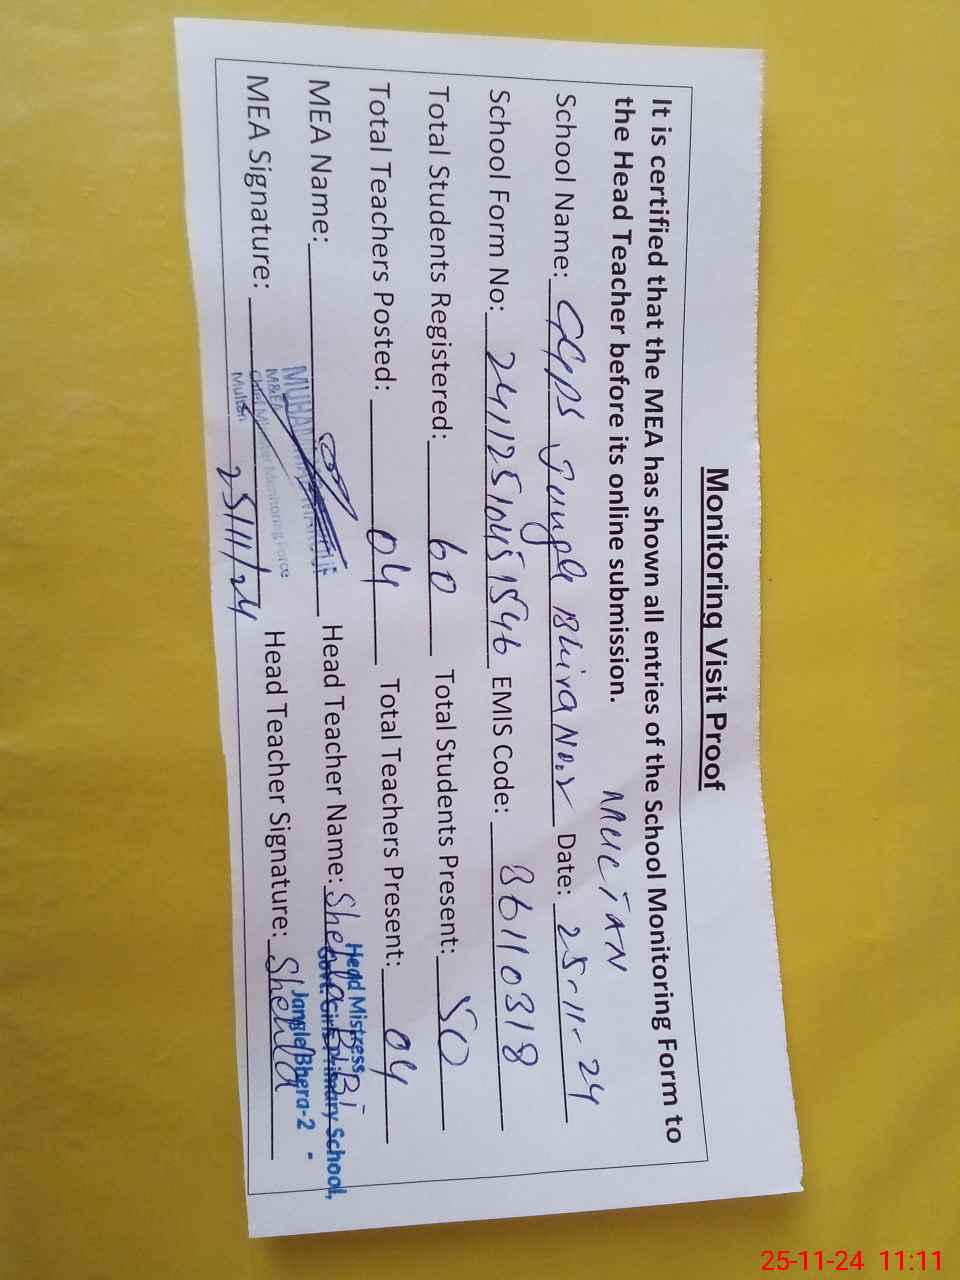 Monitoring Visit Proof
It is certified that the MEA has shown all entries of the School Monitoring Form to
the Head Teacher before its online submission. MULTAN
School Name: GGPS Jungle Bhira No.2 Date: 25-11-24
School Form No: 24112510451546 EMIS Code: 36110318
Total Students Registered: 60 Total Students Present: 50
Total Teachers Posted: 04 Total Teachers Present: 04
MEA Name: Head Teacher Name: Shehla Bi Bi
MEA Signature: Head Teacher Signature: Shehla
M&E
Chief Minister Monitoring Force
Multan
25/11/24
Head Mistress
Govt. Girls Primary School,
Jangle Bhera-2
25-11-24 11:11